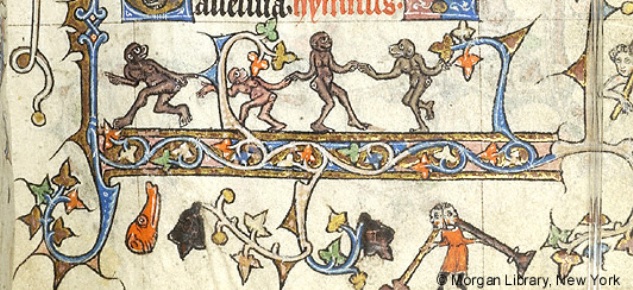 alleluia. hymnus.
© Morgan Library, New York